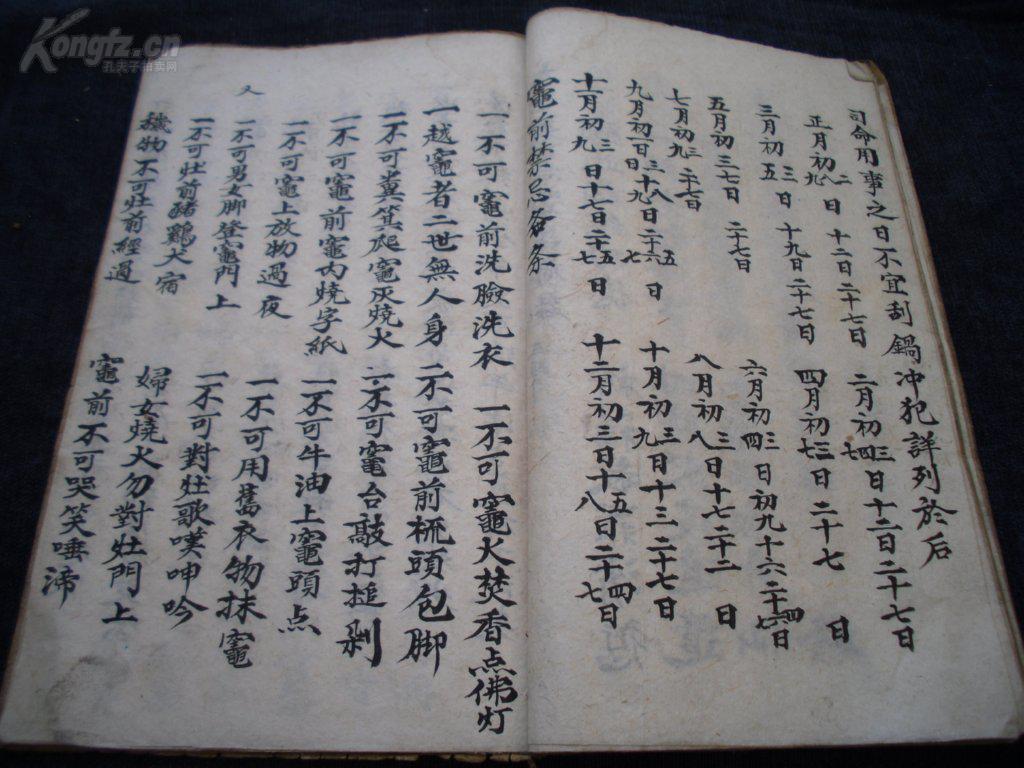 Kongfz.cn
孔夫子拍卖网
司命用事之日不宜刮鍋冲犯詳列於后
正月初二八九日十二日二十七日
二月初三四七日十二日二十七日
三月初三五日十九日二十七日
四月初三七日二十七日
五月初三七日二十七日
六月初三四日初九十六二十四七日
七月初三九二十七日
八月初三八日十七二十二日
九月初三日十八九日二十五六七日
十月初三九日十三二十七日
十一月初三九日十七日二十五七日
十二月初三日十五八日二十四七日
竈前禁忌各条
一不可竈前洗臉洗衣
一不可竈火焚香点佛灯
一越竈者二世無人身
一不可竈前梳頭包脚
一不可糞箕爬竈灰燒火
一不可竈台敲打搥剁
一不可竈前竈内燒字紙
一不可牛油上竈頭点
一不可竈上放物過夜
一不可用舊衣物抹竈
一不可男女脚登竈門上
一不可對灶歌嘆呻吟
一不可灶前豬鷄犬宿
婦女燒火勿對灶門上
又
穢物不可灶前經過
竈前不可哭笑唾涕